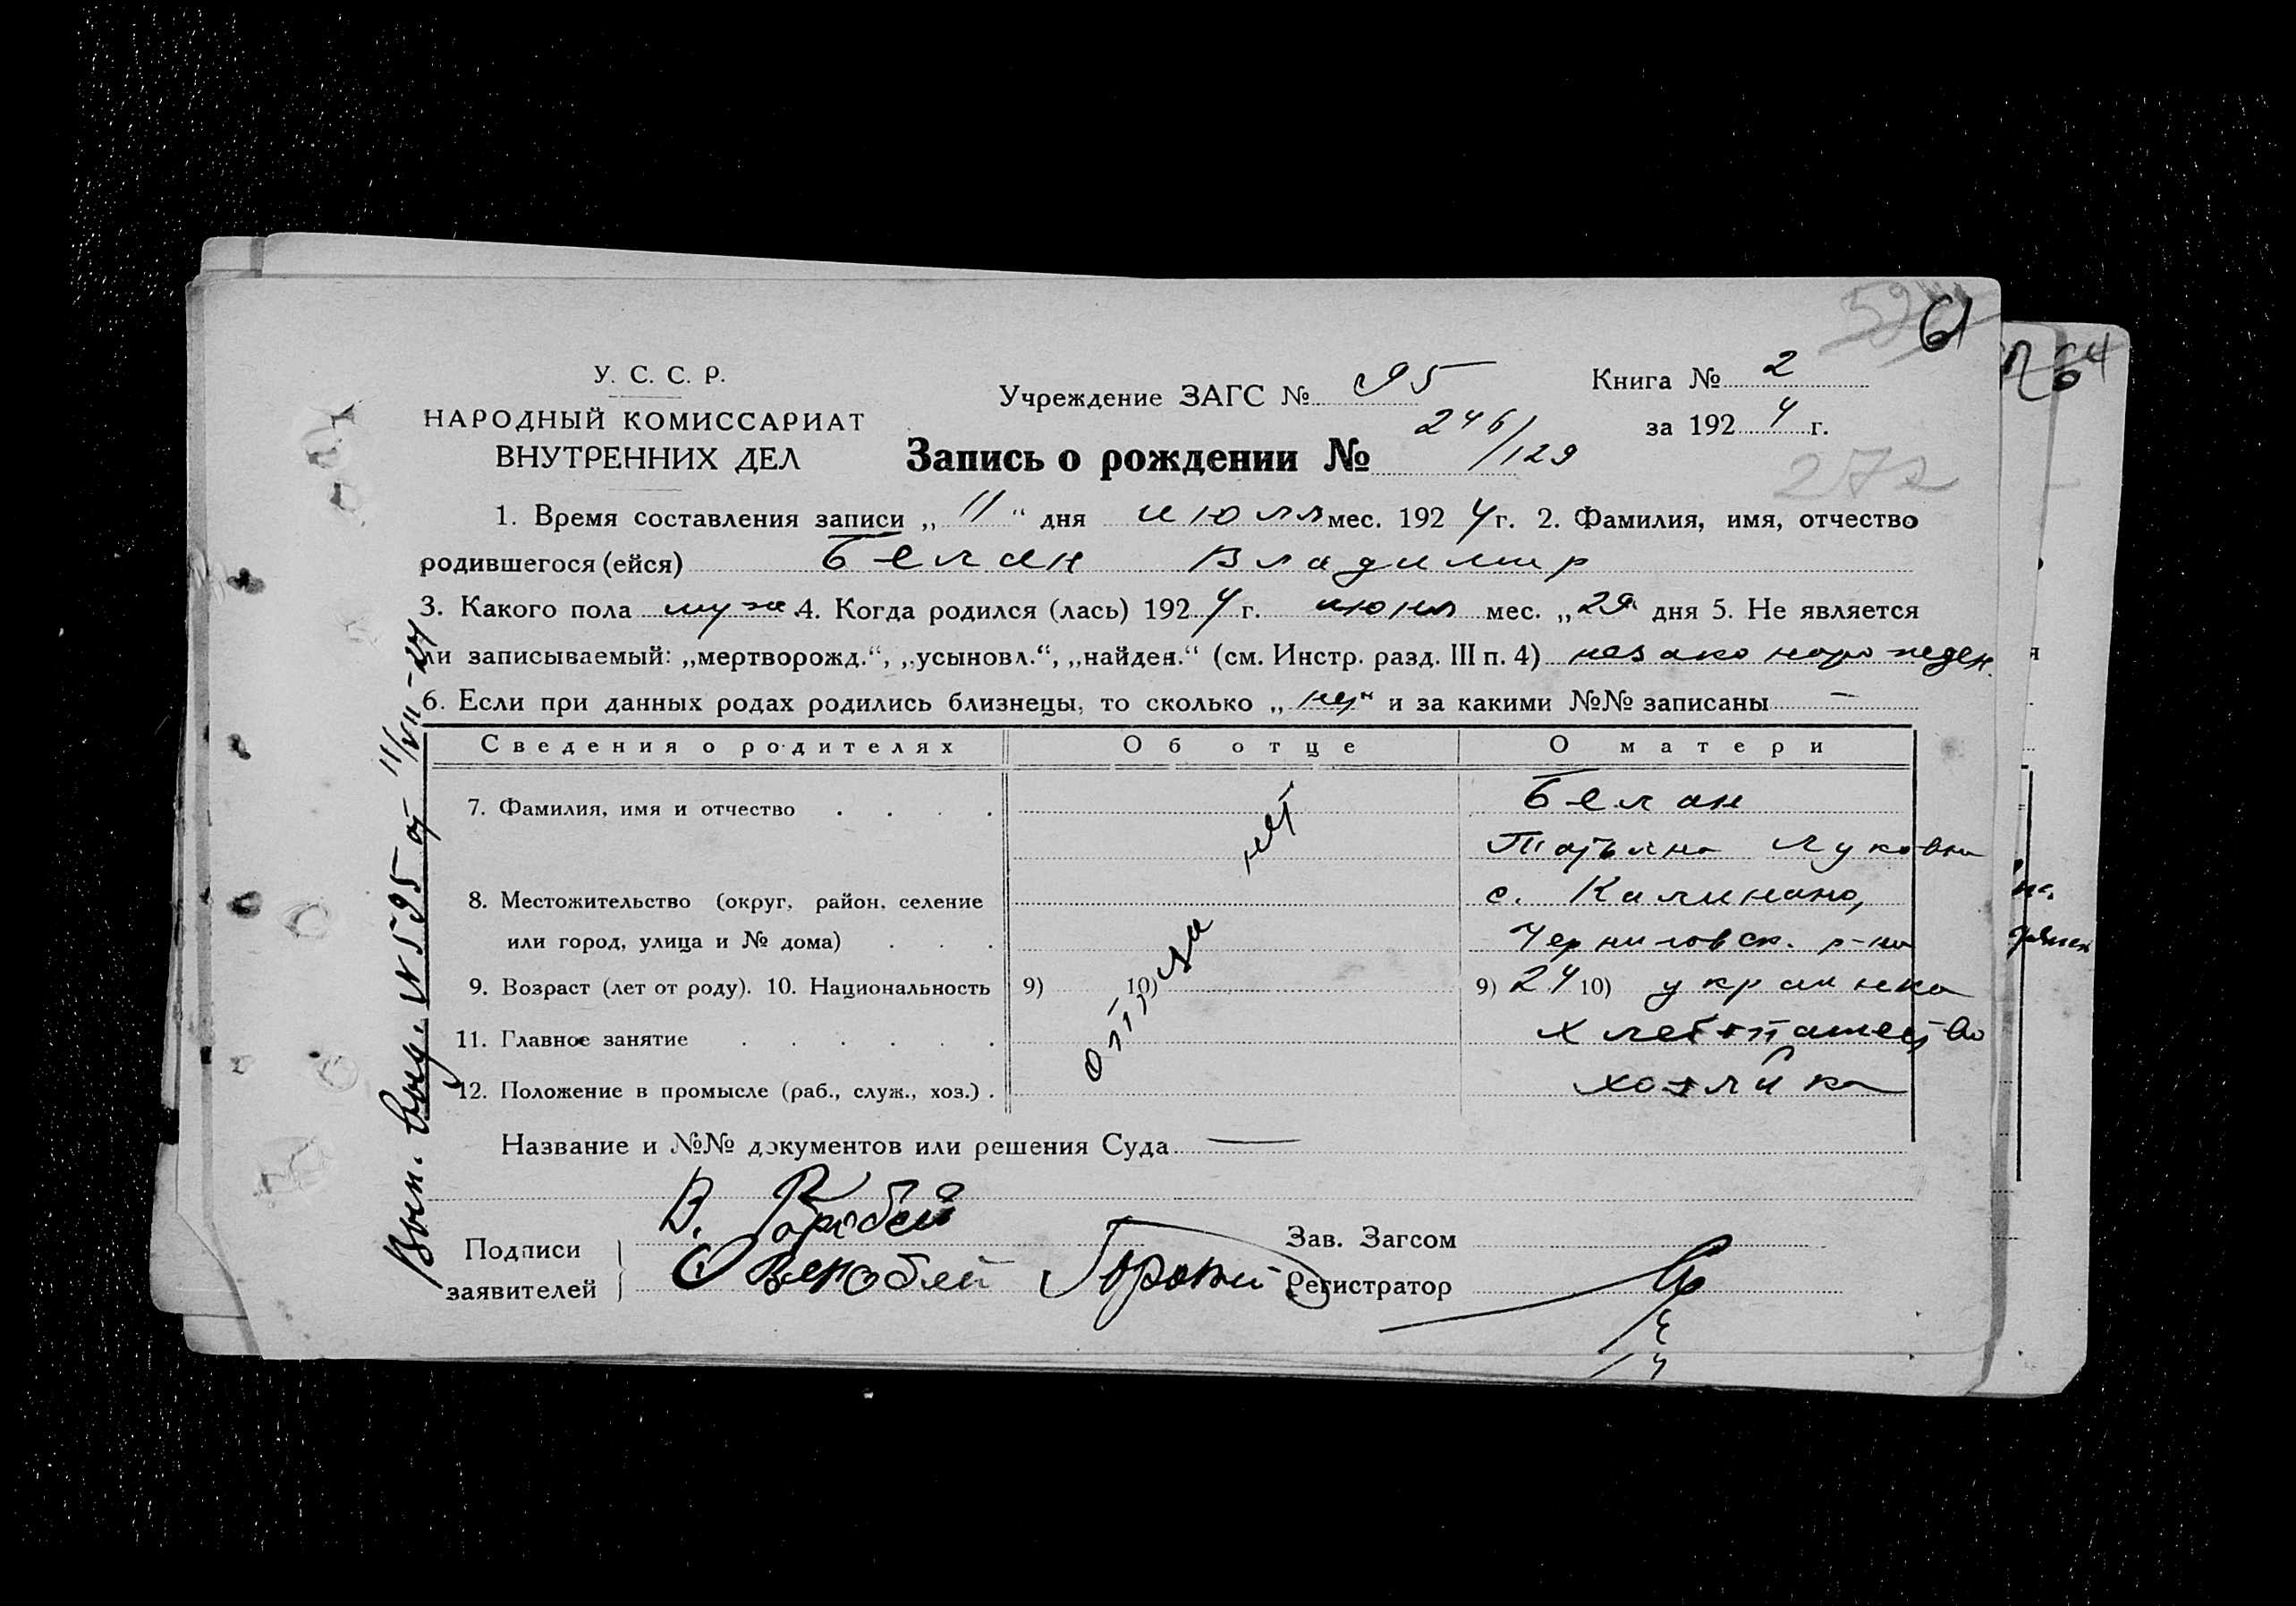 61
У. С. С. Р.
НАРОДНЫЙ КОМИССАРИАТ
ВНУТРЕННИХ ДЕЛ
Учреждение ЗАГС № 95
Книга № 2
за 1924 г.
Запись о рождении № 246/129
272
1. Время составления записи „11“ дня июля мес. 1924 г. 2. Фамилия, имя, отчество
родившегося (ейся) Белан Владимир
3. Какого пола муж. 4. Когда родился (лась) 1924 г. июня мес. „29“ дня 5. Не является
ли записываемый: „мертворожд.“, „усыновл.“, „найден.“ (см. Инстр. разд. III п. 4) незаконорожден.
6. Если при данных родах родились близнецы, то сколько „нет“ и за какими №№ записаны —
Сведения о родителях Об отце О матери
7. Фамилия, имя и отчество Белан
Татьяна Луковна
8. Местожительство (округ, район, селение с.
или город, улица и № дома) р-на
9. Возраст (лет от роду). 10. Национальность 9) 10) 9) 24 10) украинка
11. Главное занятие хлебопашество
12. Положение в промысле (раб., служ., хоз.) хозяйка
отца нет
Название и №№ документов или решения Суда —
В.
Подписи
заявителей
Зав. Загсом
Регистратор
№ 595 от 11/VII-24
64